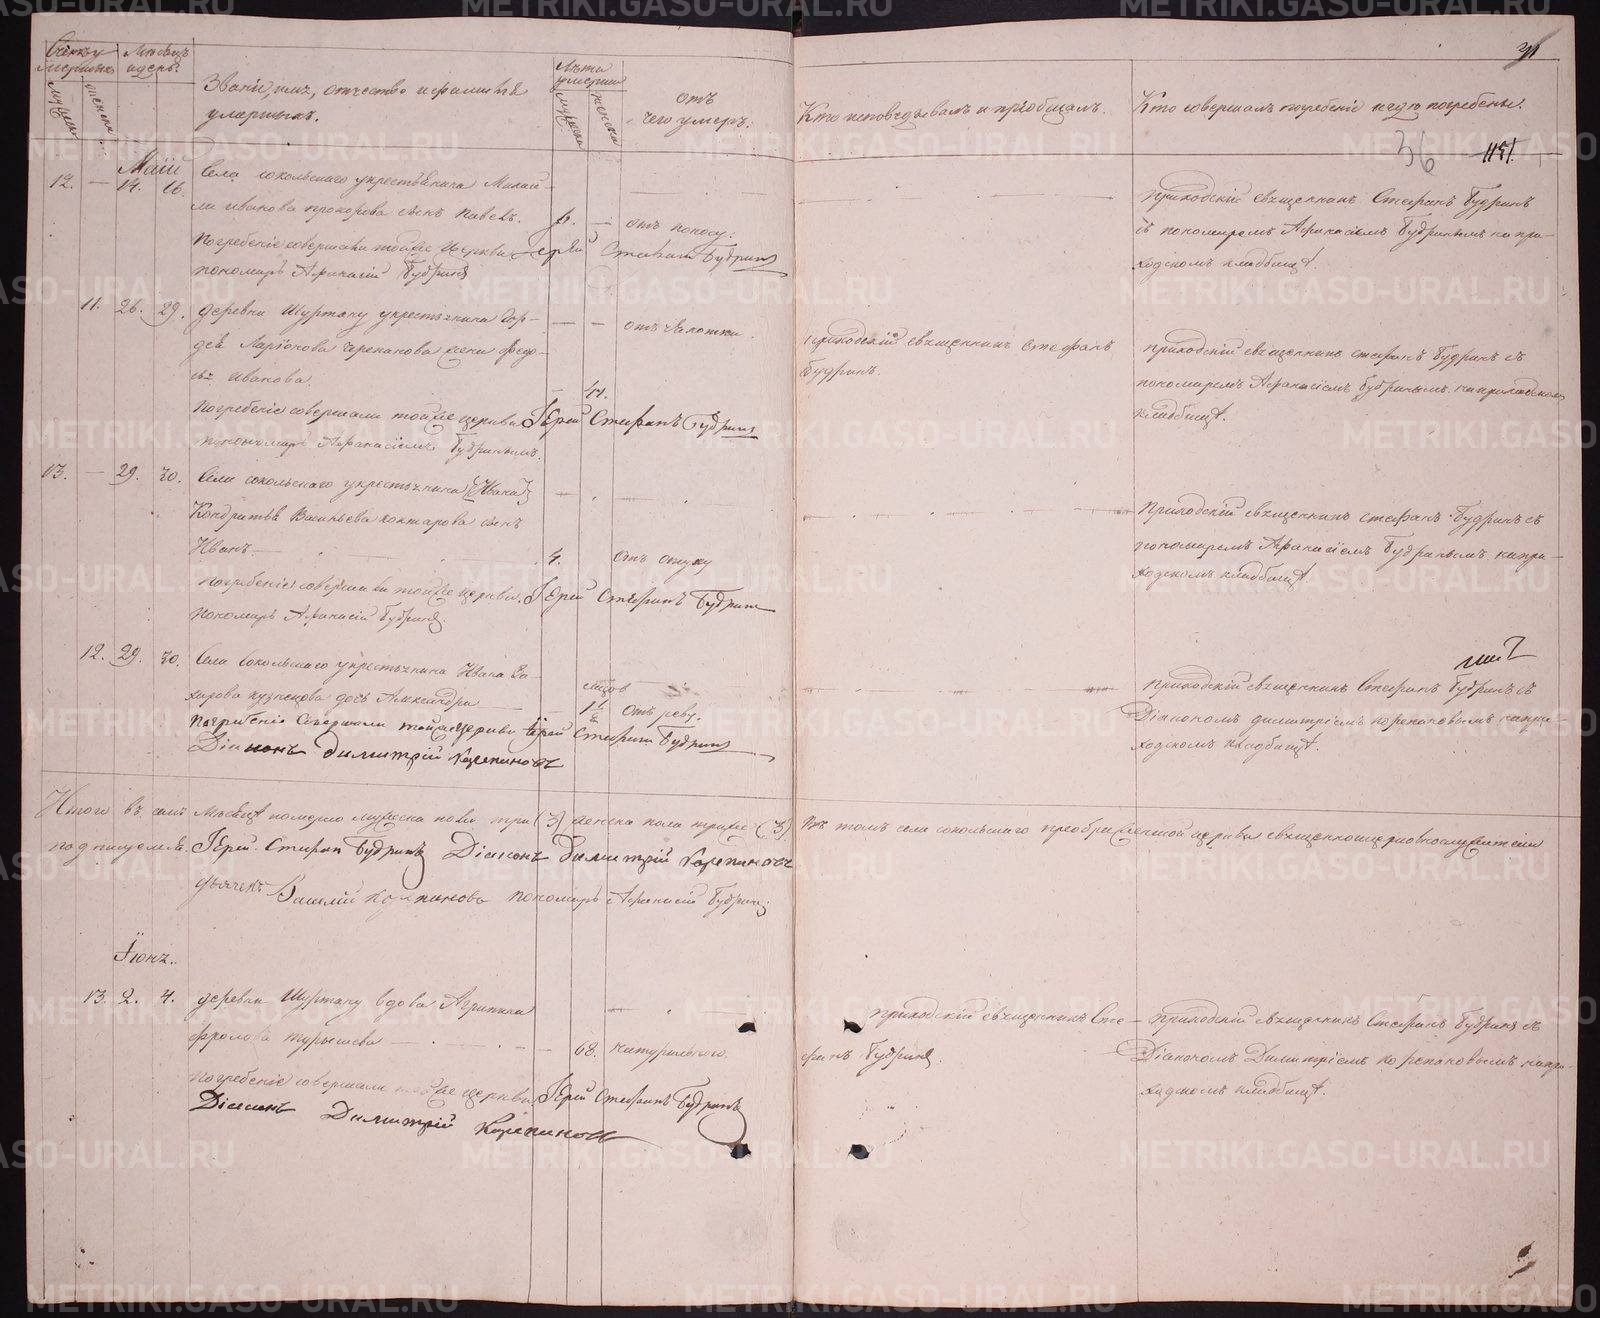 Счетъ умершихъ
Мѣсяцъ и день.
мужеска
женска
Званіе, имя, отчество и фамилія умершихъ.
Лѣта умершихъ
мужеска
женска
отъ чего умеръ.
Кто исповѣдывалъ и пріобщалъ.
Кто совершалъ погребеніе и гдѣ погребены.
36
Маій
12. — 14. 16. Села сокольскаго у крестьянина Михай-
ли иванова прохорова сынъ Павелъ. отъ поносу.
Погребеніе совершали тойже Церкви Іерей Стефанъ Будринъ
пономарь Афанасій Будринъ
Приходскій священникъ Стефанъ Будринъ
съ пономаремъ Афанасіемъ Будринымъ на при-
ходскомъ кладбищѣ.
11. 26. 29. деревни Шуртану у крестьянина Гор-
дѣя Ларіонова черепанова жена Федо-
сья Иванова.
отъ чахотки
Погребеніе совершали тойже церкви Іерей Стефанъ Будринъ
пономарь Афанасіемъ Будринымъ.
приходскій священникъ Стефанъ
Будринъ.
приходскій священникъ стефанъ Будринъ съ
пономаремъ Афанасіемъ Будринымъ на приходскомъ
кладбищѣ.
13. — 29. 30. Села сокольскаго у крестьянина (Ивана)
Кондратья Васильева сынъ
Иванъ 4. отъ опуху
погребеніе совершали тойже церкви Іерей Стефанъ Будринъ
пономарь Афанасій Будринъ.
Приходскій священникъ стефанъ Будринъ съ
пономаремъ Афанасіемъ Будринымъ на при-
ходскомъ кладбищѣ
12. 29. 30. Села сокольскаго у крестьянина Ивана За-
харова кузнецова дочь Александра
отъ реву.
Погребеніе совершали тойже Церкви Іерей Стефанъ Будринъ
Діаконъ Димитрій Корепановъ
приходскій священникъ Стефанъ Будринъ съ
Діакономъ димитріемъ корепановымъ на при-
ходскомъ кладбищѣ.
Итого въ семъ Мѣсяцѣ померло мужеска пола три (3) женска пола трижe (3) Въ томъ села сокольскаго преображенской церкви священноицерковнослужители
подписуемся. Іерей Стефанъ Будринъ Діаконъ Димитрій Корепановъ
дьячекъ Василій Корпиновъ пономарь Афанасій Будринъ
Іюнь.
13. 2. 4. деревни Шуртану вдова Агрипина
фролова турышева 68. натуральною.
погребеніе совершали тойже церкви Іерей Стефанъ Будринъ
Діаконъ Димитрій Корепановъ
приходскій священникъ Сте-
фанъ Будринъ.
приходскій священникъ Стефанъ Будринъ съ
Діакономъ Димитріемъ корепановымъ на при-
ходскомъ кладбищѣ.
METRIKI.GASO-URAL.RU